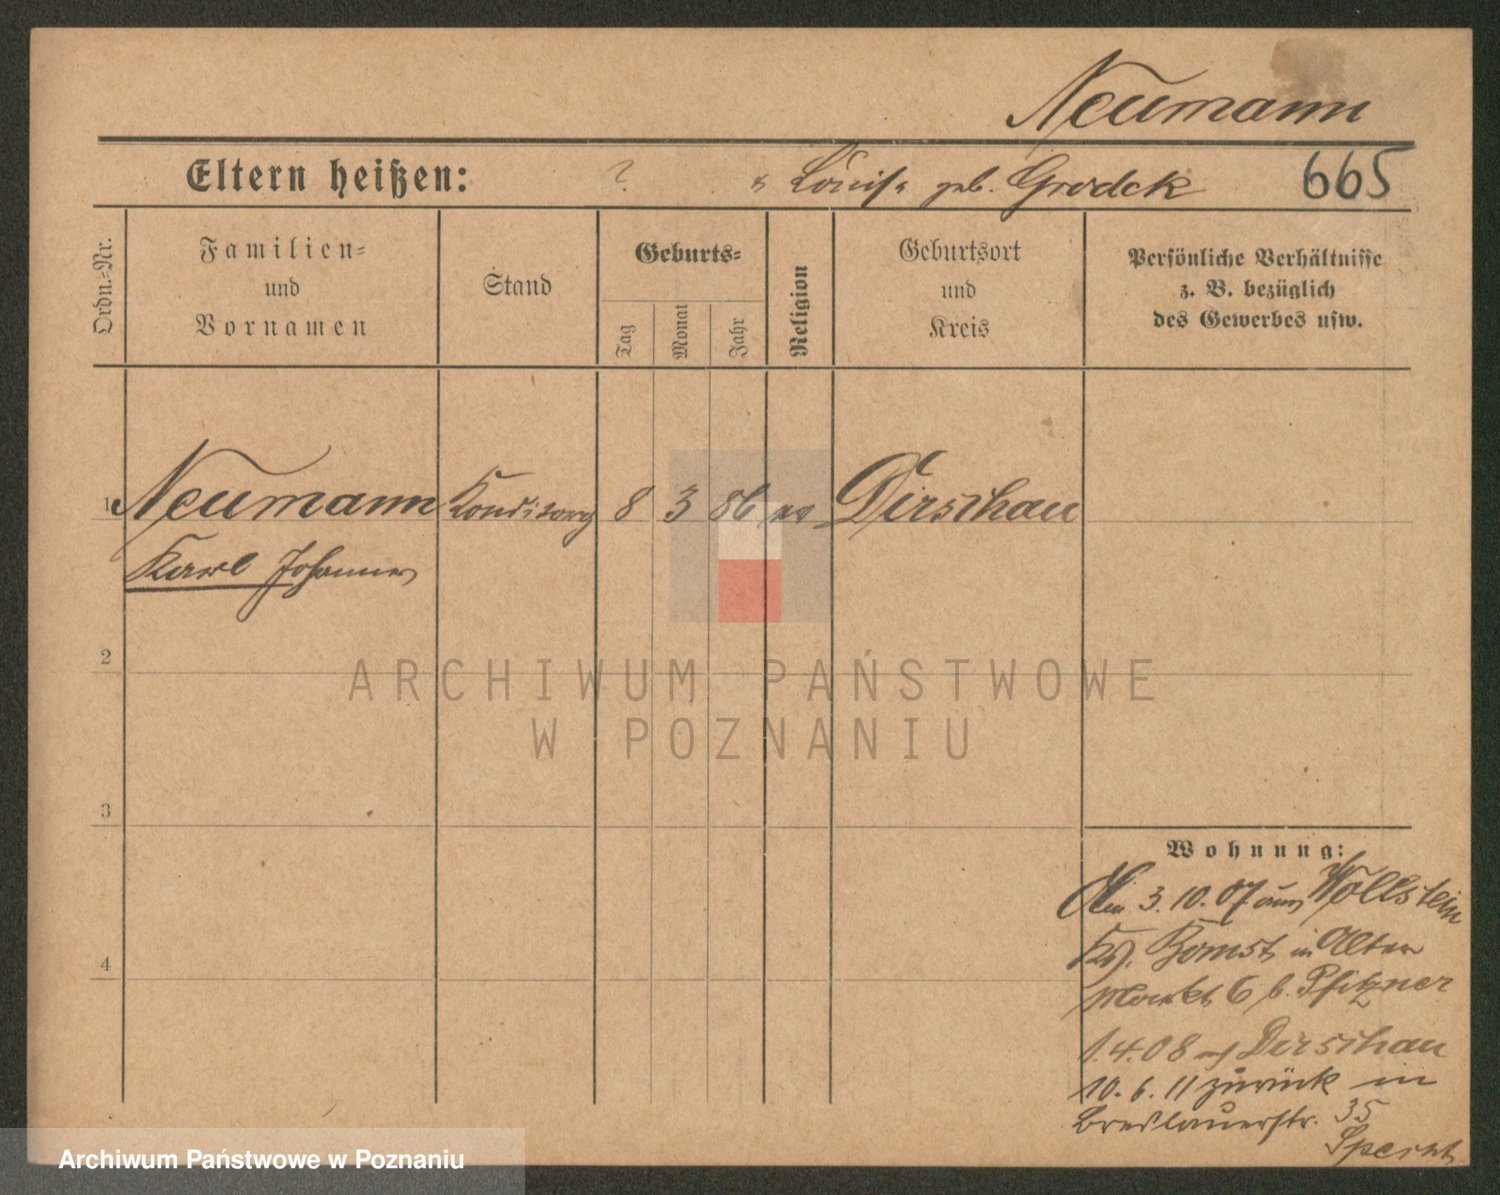 Neumann
Eltern heißen: ? u Louise geb. Grodck 665
Ordn.-Nr.
Familien-
und
Vornamen
Stand
Geburts-
Tag
Monat
Jahr
Religion
Geburtsort
und
Kreis
Persönliche Verhältnisse
z. B. bezüglich
des Gewerbes usw.
1 Neumann Konditorg 8 3 86 ev Dirschau
Karl Johannes
2
ARCHIWUM PAŃSTWOWE
W POZNANIU
3
Wohnung:
Am 3.10.07 aus Wollstein
Krs. Bomst in Alter
4
Markt 6 b. Pfitzner
1.4.08 nach Dirschau
10.6.11 zurück in
Breslauerstr. 35
Archiwum Państwowe w Poznaniu